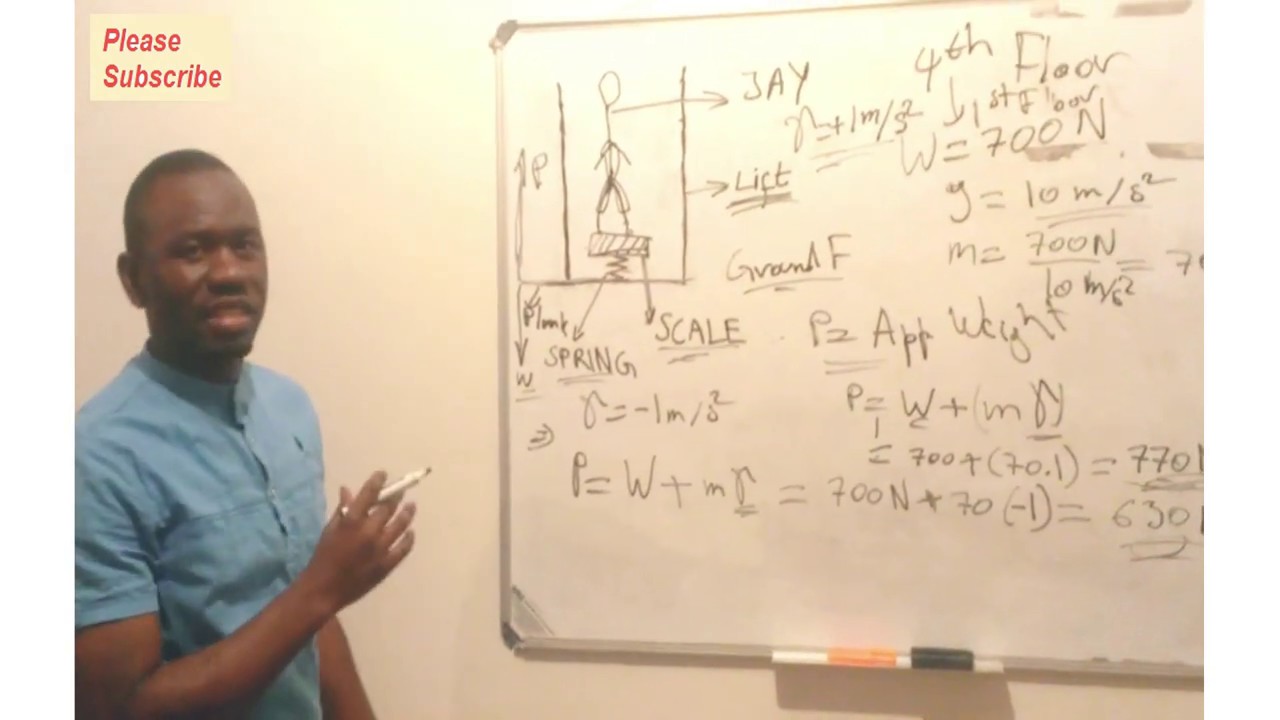 Please
Subscribe
4th Floor
JAY
1st Floor
γ=+1m/s²
W=700N
P
Lift
g = 10 m/s²
Ground F
m= 700N
10 m/s² = 70
Plank
SCALE
P= App Weight
SPRING
W
γ=-1m/s²
P= W+(mγ)
⇒
= 700+(70.1) = 770
P= W+mγ = 700N+70(-1)= 630